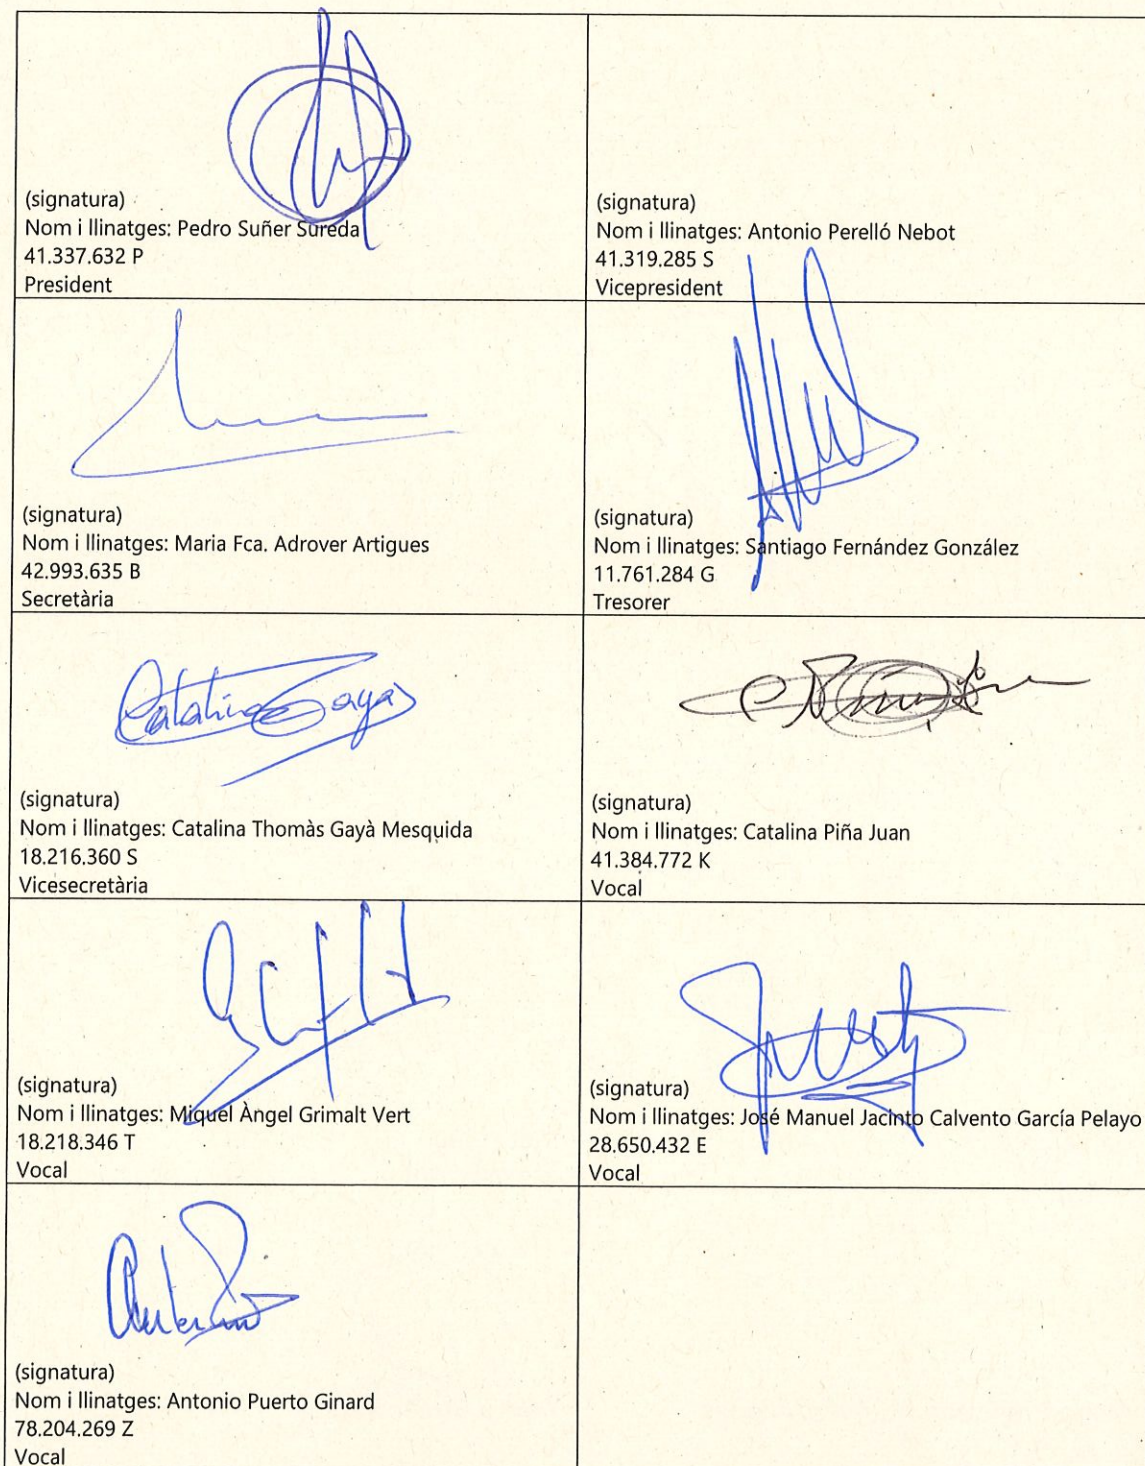 (signatura)
Nom i llinatges: Pedro Suñer Sureda
41.337.632 P
President
(signatura)
Nom i llinatges: Antonio Perelló Nebot
41.319.285 S
Vicepresident
(signatura)
Nom i llinatges: Maria Fca. Adrover Artigues
42.993.635 B
Secretària
(signatura)
Nom i llinatges: Santiago Fernández González
11.761.284 G
Tresorer
Catalina Gayà
(signatura)
Nom i llinatges: Catalina Thomàs Gayà Mesquida
18.216.360 S
Vicesecretària
(signatura)
Nom i llinatges: Catalina Piña Juan
41.384.772 K
Vocal
(signatura)
Nom i llinatges: Miquel Àngel Grimalt Vert
18.218.346 T
Vocal
(signatura)
Nom i llinatges: José Manuel Jacinto Calvento García Pelayo
28.650.432 E
Vocal
(signatura)
Nom i llinatges: Antonio Puerto Ginard
78.204.269 Z
Vocal